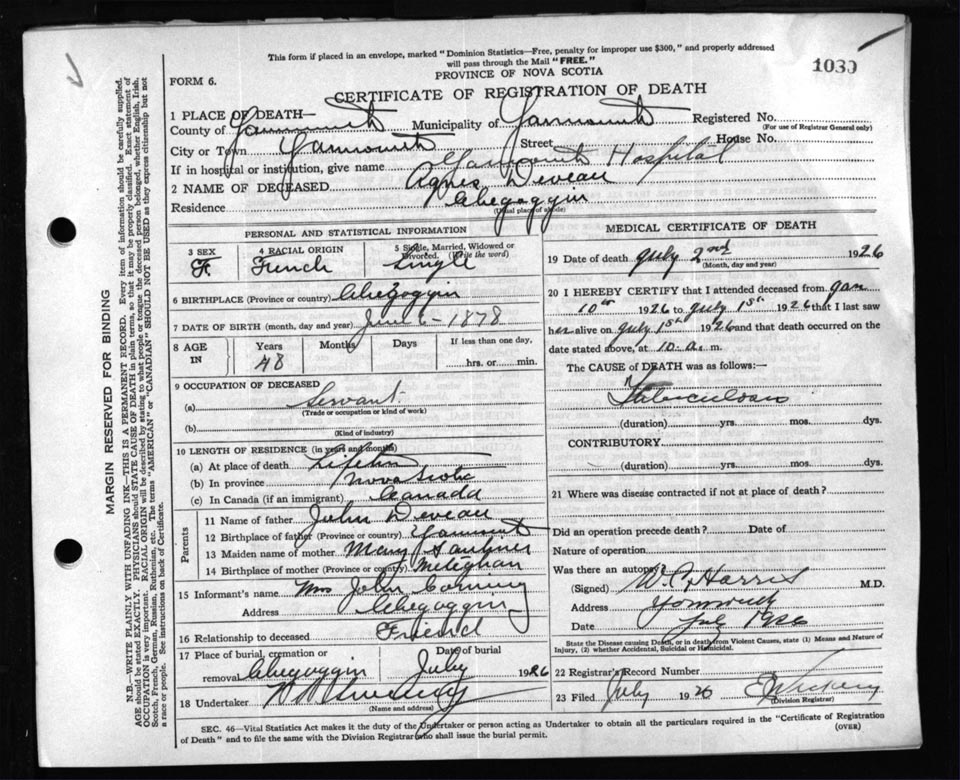 This form if placed in an envelope, marked "Dominion Statistics—Free, penalty for improper use $300," and properly addressed
will pass through the Mail "FREE."
1030
FORM 6.
PROVINCE OF NOVA SCOTIA
CERTIFICATE OF REGISTRATION OF DEATH
1 PLACE OF DEATH—
County of Yarmouth Municipality of Yarmouth Registered No.
(For use of Registrar General only)
City or Town Yarmouth Street House No.
If in hospital or institution, give name Yarmouth Hospital
2 NAME OF DECEASED Agnes Deveau
Residence Chegoggin
(Usual place of abode)
PERSONAL AND STATISTICAL INFORMATION
3 SEX 4 RACIAL ORIGIN 5 Single, Married, Widowed or Divorced. (Write the word)
F. French Single
6 BIRTHPLACE (Province or country) Chegoggin
7 DATE OF BIRTH (month, day and year) June 6-1878
8 AGE IN Years Months Days If less than one day,
48 hrs. or min.
9 OCCUPATION OF DECEASED
(a) Servant
(Trade or occupation or kind of work)
(b)
(Kind of industry)
10 LENGTH OF RESIDENCE (in years and months)
(a) At place of death Lifetime
(b) In province Nova Scotia
(c) In Canada (if an immigrant) Canada
Parents
11 Name of father John Deveau
12 Birthplace of father (Province or country) Yarmouth
13 Maiden name of mother Mary
14 Birthplace of mother (Province or country) Meteghan
15 Informant's name Mrs John Corning
Address Chegoggin
16 Relationship to deceased Friend
17 Place of burial, cremation or removal Date of burial
Chegoggin July 1926
18 Undertaker Sweeney
(Name and address)
MEDICAL CERTIFICATE OF DEATH
19 Date of death July 2nd 1926
(Month, day and year)
20 I HEREBY CERTIFY that I attended deceased from Jan
10th 1926 to July 1st 1926 that I last saw
her alive on July 1st 1926 and that death occurred on the
date stated above, at 10 a. m.
The CAUSE of DEATH was as follows:—
Tuberculosis
(duration) yrs. mos. dys.
CONTRIBUTORY
(duration) yrs. mos. dys.
21 Where was disease contracted if not at place of death?
Did an operation precede death? Date of
Nature of operation
Was there an autopsy?
(Signed) W. C. Harris M.D.
Address Yarmouth
Date July 1926
State the Disease causing Death, or in death from Violent Causes, state (1) Means and Nature of
Injury, (2) whether Accidental, Suicidal or Homicidal.
22 Registrar's Record Number
23 Filed July 1926
(Division Registrar)
SEC. 46—Vital Statistics Act makes it the duty of the Undertaker or person acting as Undertaker to obtain all the particulars required in the "Certificate of Registration
of Death" and to file the same with the Division Registrar who shall issue the burial permit.
(OVER)
MARGIN RESERVED FOR BINDING
N.B.—WRITE PLAINLY WITH UNFADING INK—THIS IS A PERMANENT RECORD. Every item of information should be carefully supplied.
AGE should be stated EXACTLY. PHYSICIANS should STATE CAUSE OF DEATH in plain terms, so that it may be properly classified. Exact statement of
OCCUPATION is very important. RACIAL ORIGIN will be described by stating to what people or tongue the deceased person belonged, whether English, Irish,
Scotch, French, German, Russian, Ruthenian, etc. The terms "AMERICAN" or "CANADIAN" SHOULD NOT BE USED as they express citizenship but not
a race or people. See instructions on back of Certificate.